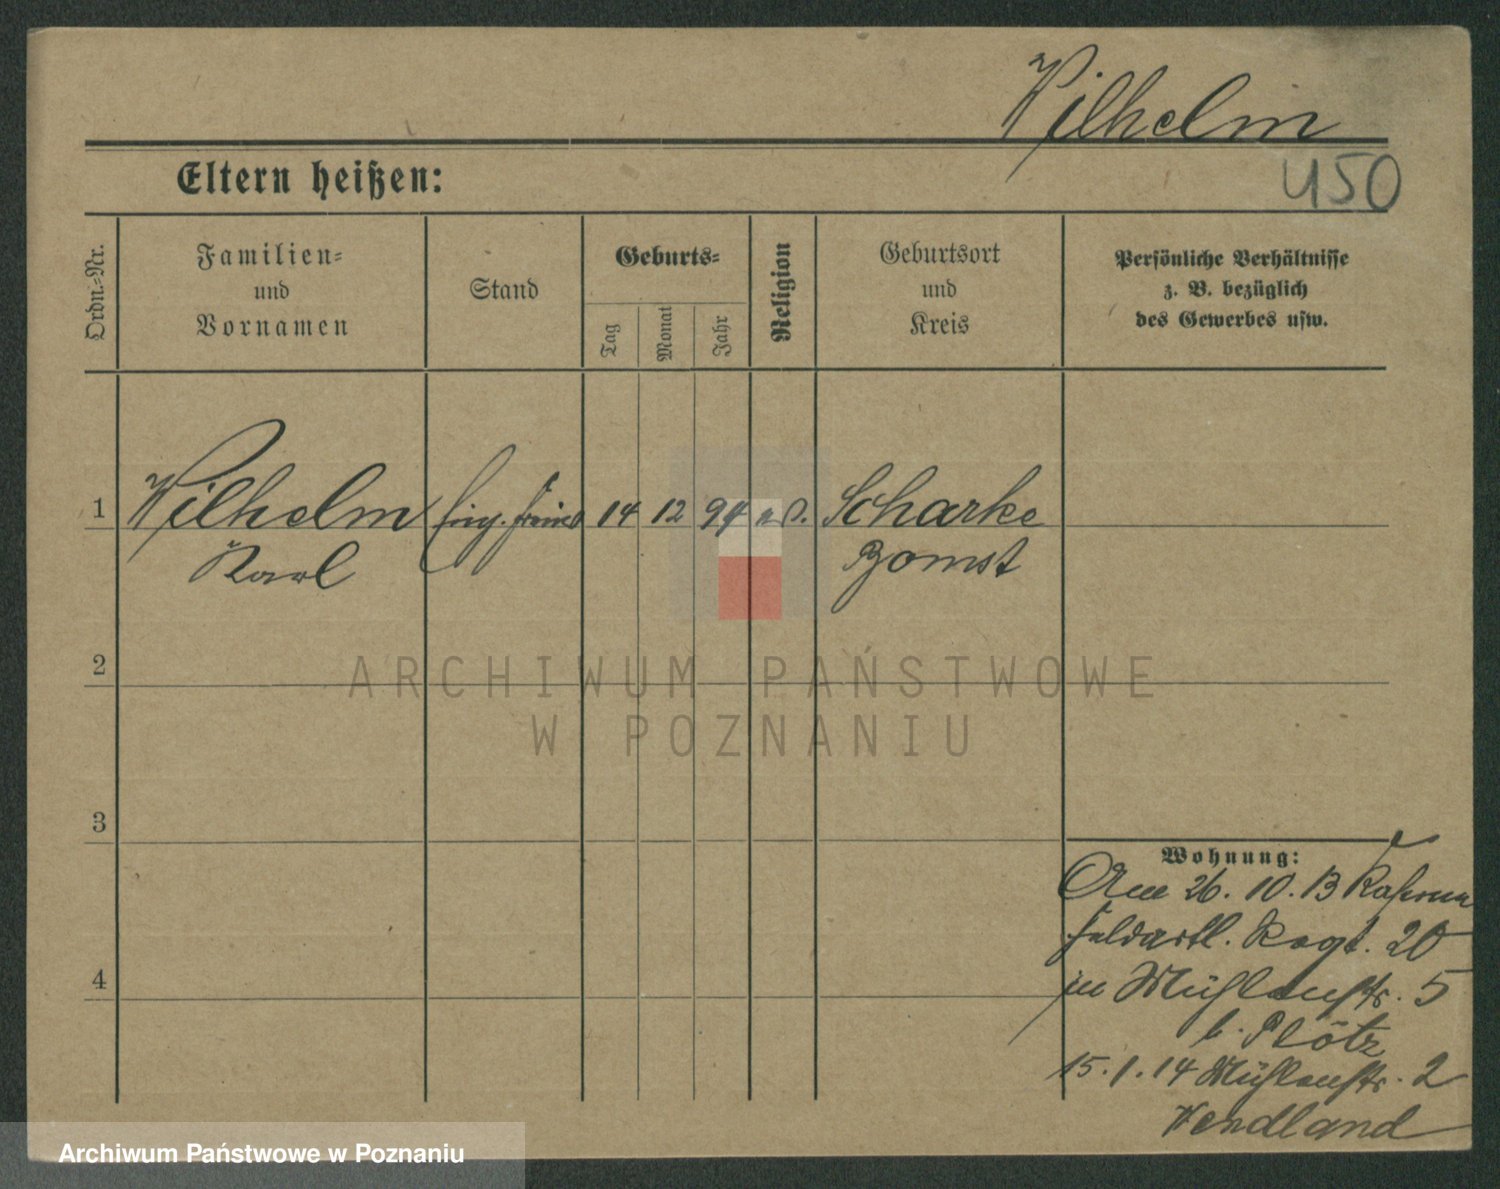 Wilhelm
Eltern heißen:
450
Ordn.-Nr.
Familien-
und
Vornamen
Stand
Geburts-
Tag
Monat
Jahr
Religion
Geburtsort
und
Kreis
Persönliche Verhältnisse
z. B. bezüglich
des Gewerbes usw.
1
Wilhelm
Karl
Einj. Freiw
14
12
94
Scharke
Bomst
2
ARCHIWUM PAŃSTWOWE
W POZNANIU
3
Wohnung:
26. 10. 13 Kaserne
Feldartl. Regt. 20
in Mühlenstr. 5
b. Plötz
15. 1. 14 Mühlenstr. 2
Wendland
4
Archiwum Państwowe w Poznaniu